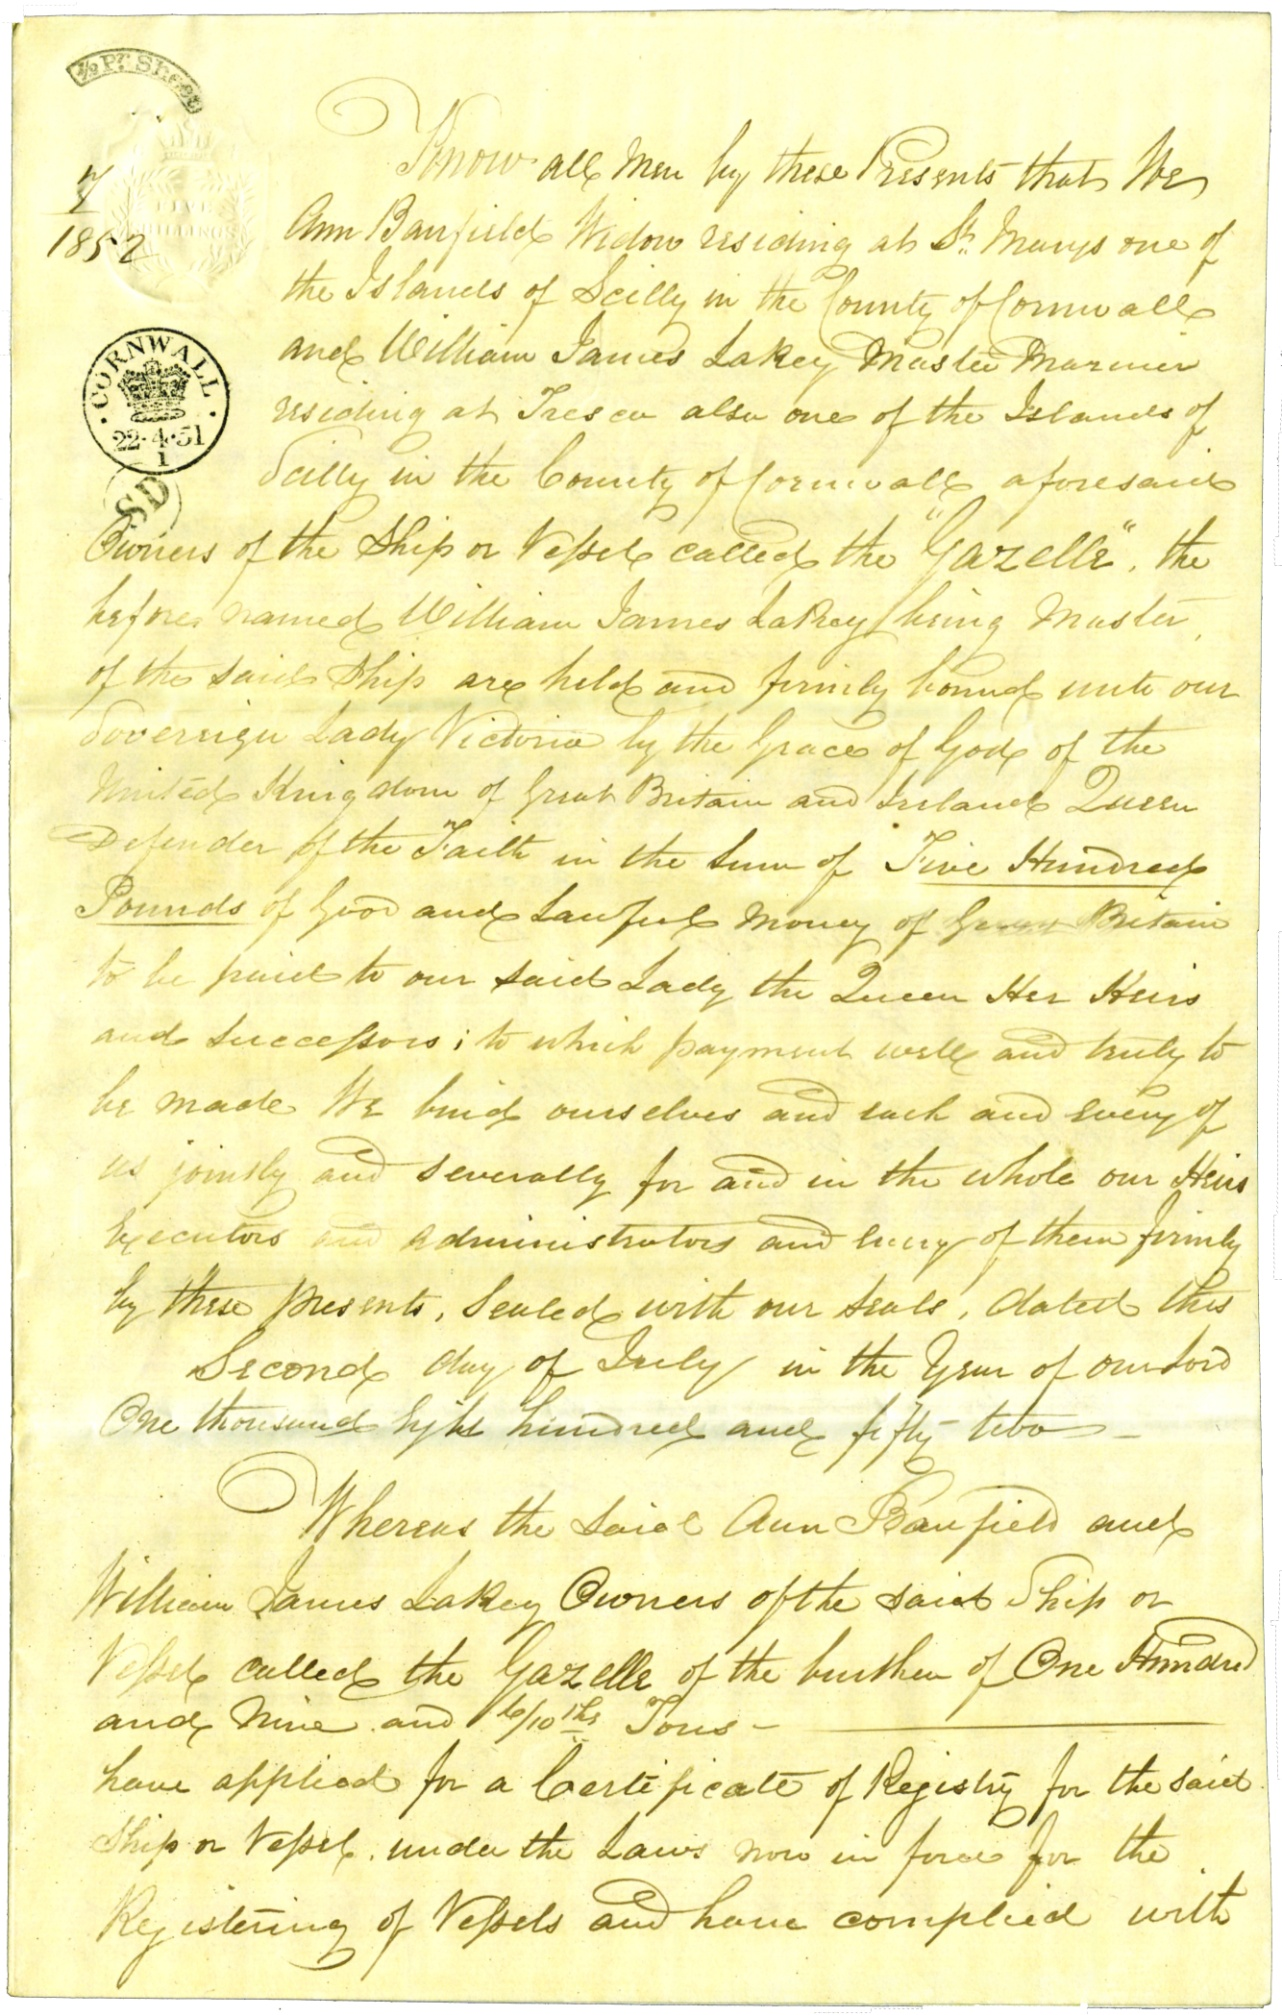 ½ Pr. Sheet
7
1852
FIVE
SHILLINGS
CORNWALL
22·4·51
1
SD
Know all Men by these Presents that We
Ann Banfield Widow residing at St. Marys one of
the Islands of Scilly in the County of Cornwall
and William James Lakey Master Mariner
residing at Tresco also one of the Islands of
Scilly in the County of Cornwall aforesaid
Owners of the Ship or Vessel called the "Gazelle", the
before named William James Lakey being Master
of the said Ship are held and firmly bound unto our
Sovereign Lady Victoria by the Grace of God of the
United Kingdom of Great Britain and Ireland Queen
Defender of the Faith in the Sum of Five Hundred
Pounds of Good and Lawful Money of Great Britain
to be paid to our said Lady the Queen Her Heirs
and Successors; to which payment well and truly to
be made We bind ourselves and each and every of
us jointly and severally for and in the whole our Heirs
Executors and Administrators and every of them firmly
by these presents, Sealed with our seals, dated this
Second day of July in the Year of our Lord
One thousand Eight hundred and fifty two
Whereas the said Ann Banfield and
William James Lakey Owners of the said Ship or
Vessel called the Gazelle of the burthen of One Hundred
and Nine and 6/10ths Tons
have applied for a Certificate of Registry for the said
Ship or Vessel, under the Laws now in force for the
Registering of Vessels and have complied with